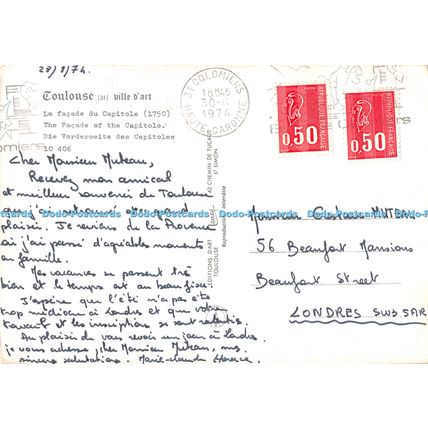 28/8/74.
Toulouse (31) ville d'art
La façade du Capitole (1750)
The Façade of the Capitole.
Die Vorderseite des Capitoles
10 406
31 COLOMIERS
18H45
1974
HAUTE-GARONNE
0,50
RÉPUBLIQUE FRANÇAISE
0,50
RÉPUBLIQUE FRANÇAISE
Cher Monsieur Muteau,
Recevez mon amical
et meilleur souvenir de Toulouse
plaisir. Je reviens de la Provence
où j'ai passé d'agréables moments
en famille.
Mes vacances se passent très
bien et le temps est au beau fixe.
J'espère que l'été n'a pas été
trop médiocre à Londres et que votre
travail et les inscriptions se sont ralenties.
Au plaisir de vous revoir un jour à Londres,
je vous adresse, cher Monsieur Muteau, mes
sincères salutations. Marie-Claude
ÉDITIONS D'ART
TOULOUSE
42 CHEMIN DE TUCAUT
ST SIMON
Reproduction interdite
Monsieur Gustave MUTEAU
56 Beaufort Mansions
Beaufort Street
LONDRES SW3 5AR
Dodo-Postcards Dodo-Postcards Dodo-Postcards Dodo-Postcards